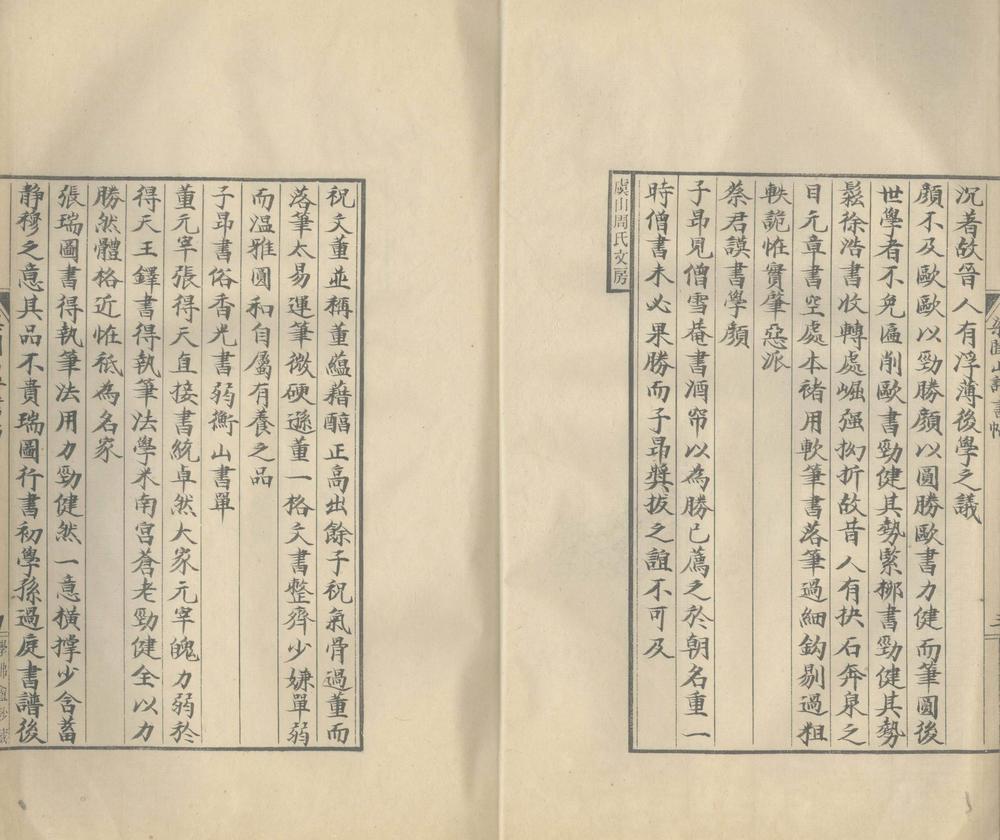 沉著故晉人有浮薄後學之議
顏不及歐歐以勁勝顏以圓勝歐書力健而筆圓後
世學者不免匾削歐書勁健其勢緊柳書勁健其勢
鬆徐浩書收轉處崛强拗折故昔人有抉石奔泉之
目元章書空處本禇用軟筆書落筆過細鈎剔過粗
軼詭恠實肇惡派
蔡君謨書學顏
子昂見僧雪菴書酒帘以為勝已薦之於朝名重一
時僧書未必果勝而子昂奬拔之誼不可及
虞山周氏文房
祝文董並稱董蘊藉醕正高出餘子祝氣骨過董而
落筆太易運筆微硬遜董一格文書整齊少嫌單弱
而温雅圓和自屬有養之品
子昂書俗香光書弱衡山書單
董元宰張得天直接書統卓然大家元宰魄力弱於
得天王鐸書得執筆法學米南宮蒼老勁健全以力
勝然體格近恠秖為名家
張瑞圖書得執筆法用力勁健然一意橫撑少含蓄
静穆之意其品不貴瑞圖行書初學孫過庭書譜後